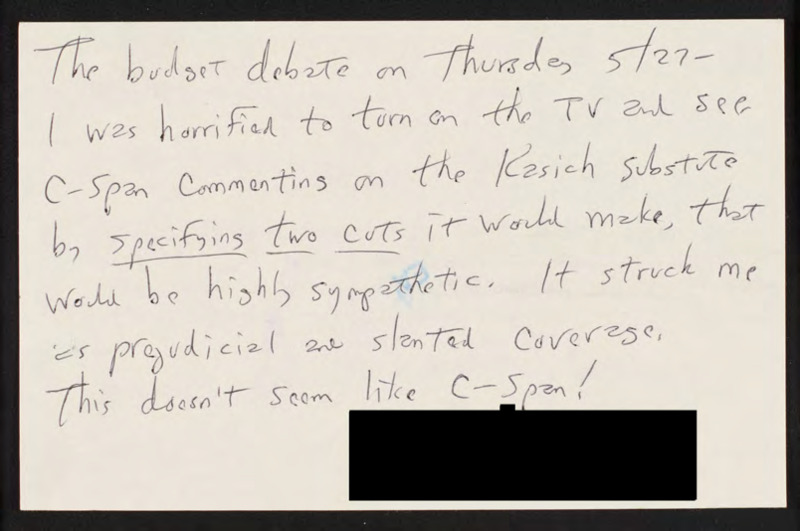 The budget debate on Thursday 5/27-
I was horrified to turn on the TV and see
C-Span Commenting on the Kasich substute
by specifying two cuts it would make, that
would be highly sympathetic. It struck me
as prejudicial and slanted coverage.
This doesn't seem like C-Span!